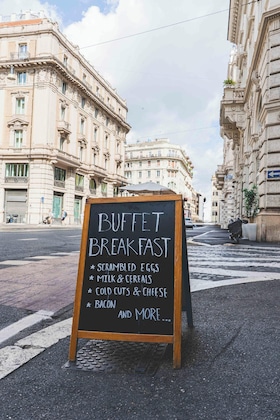 BUFFET
BREAKFAST
* SCRAMBLED EGGS
* MILK & CEREALS
* COLD CUTS & CHEESE
* BACON
AND MORE...